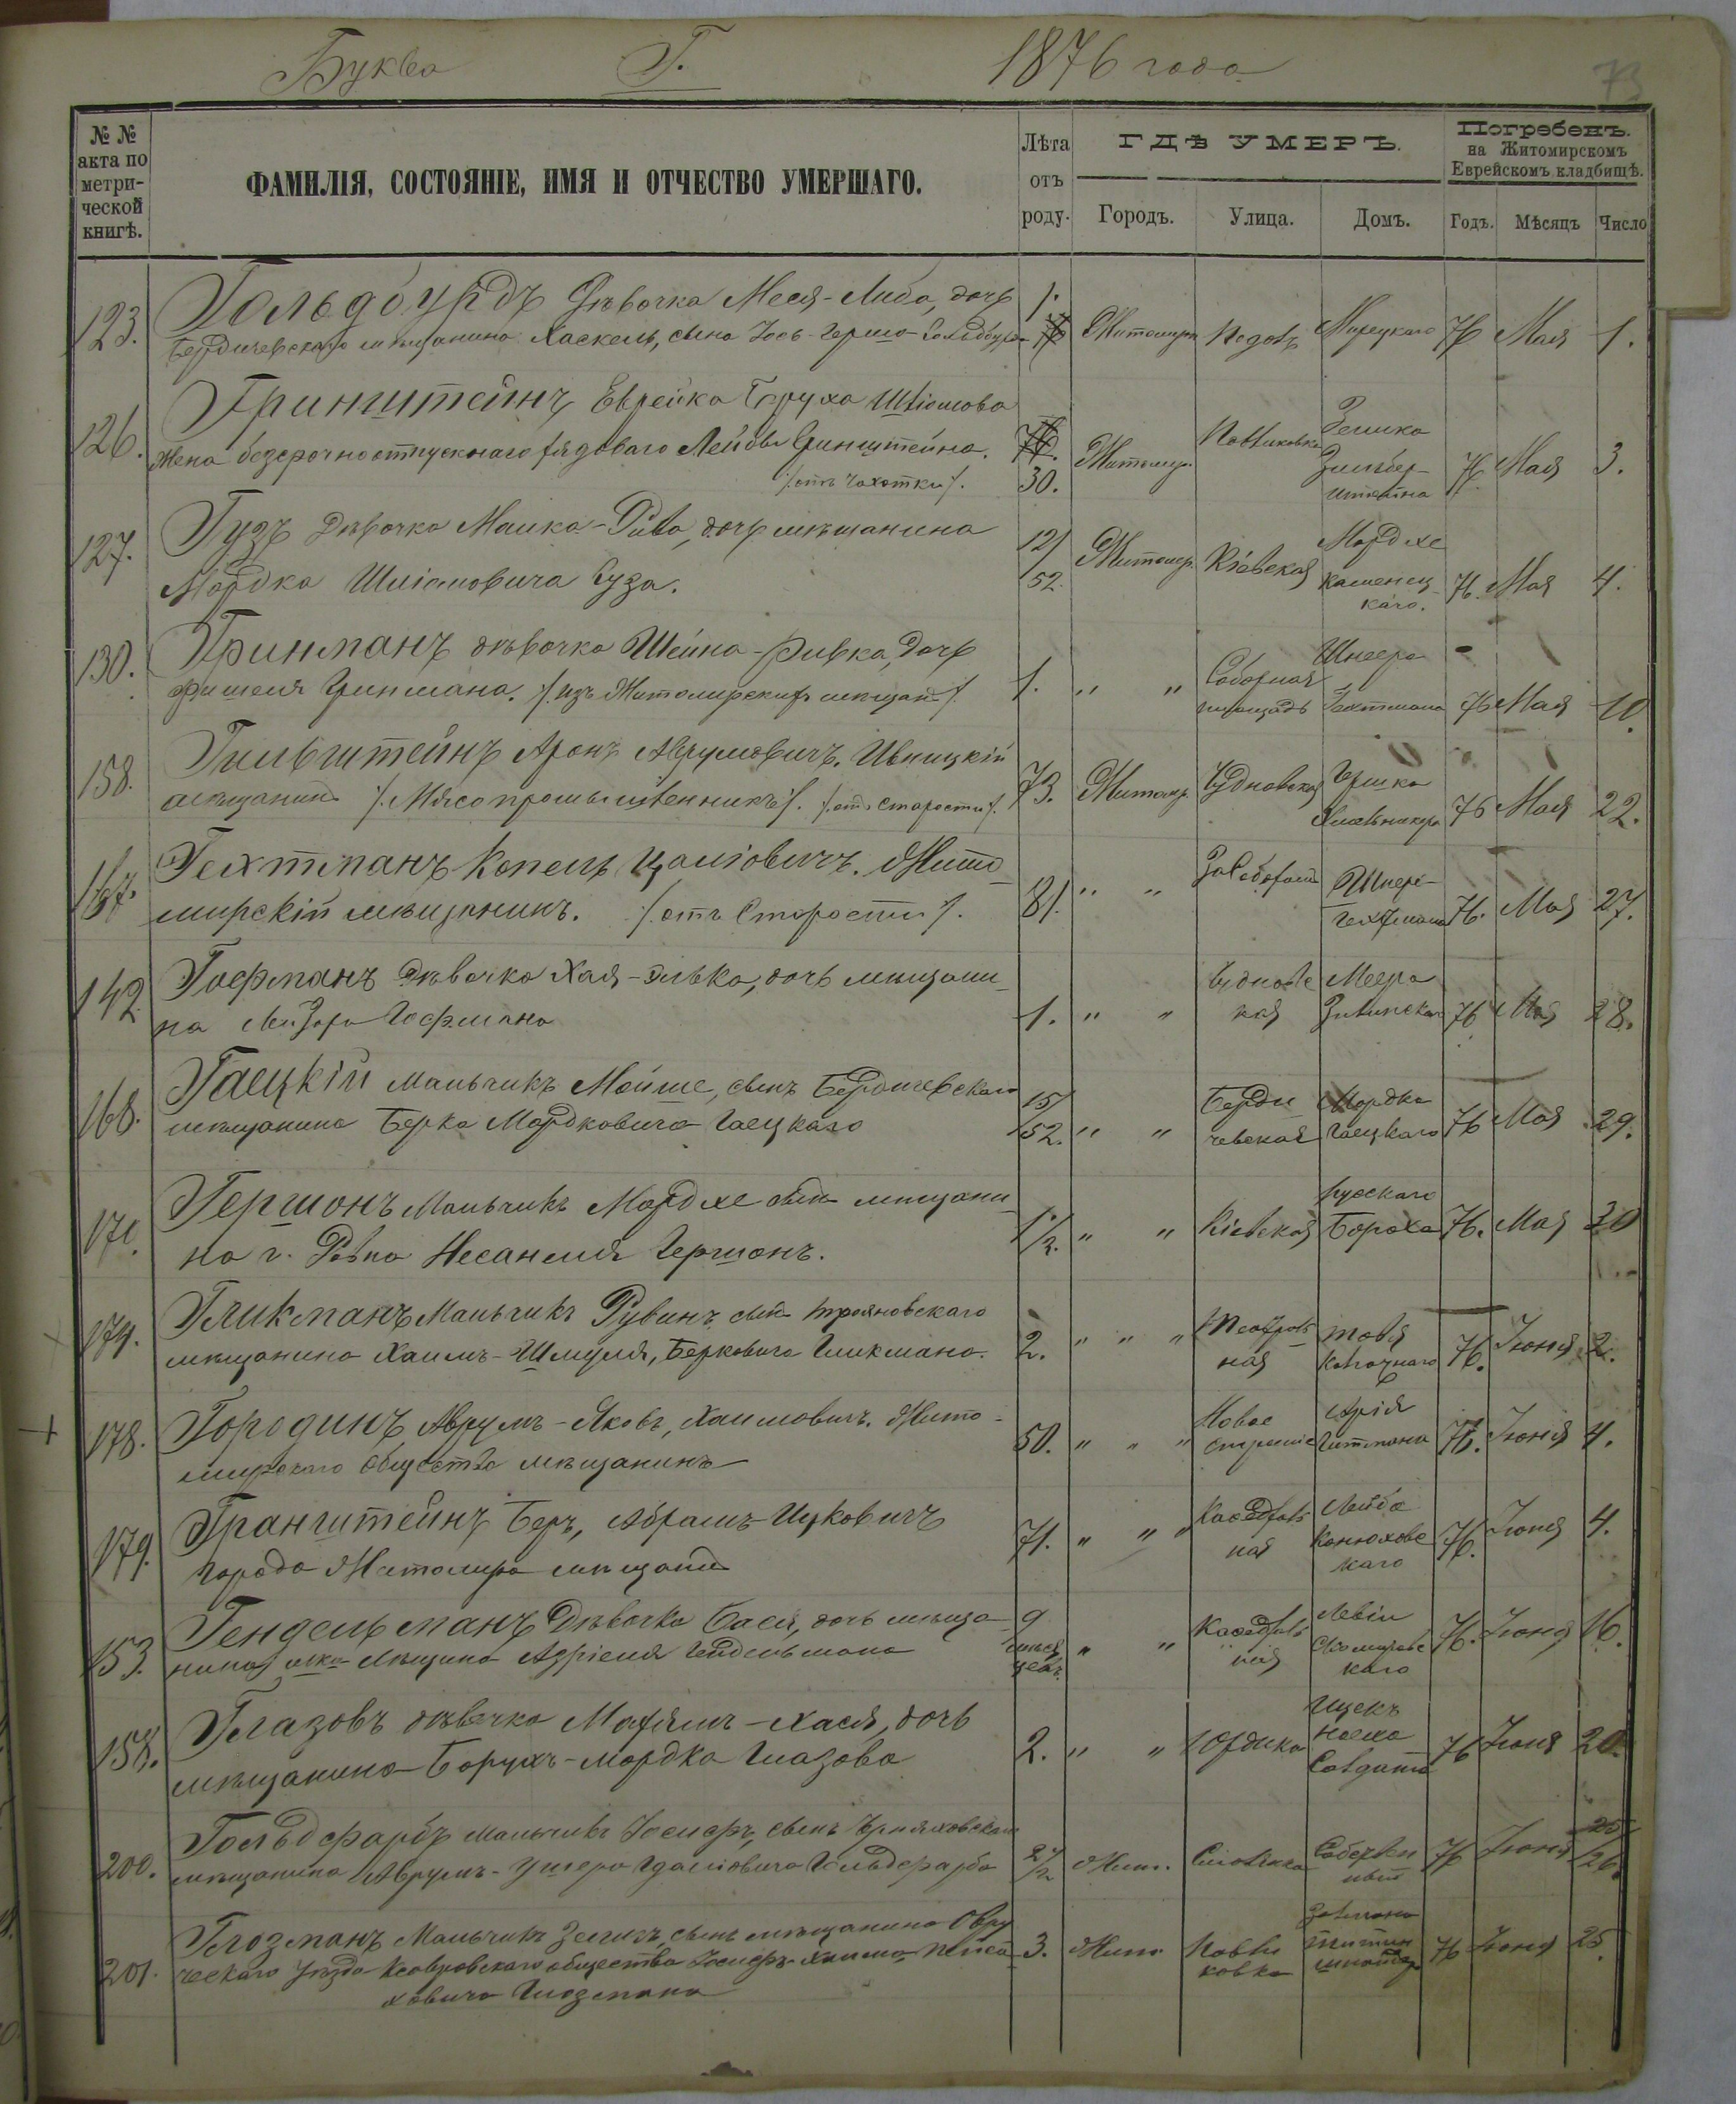 Буква Г. 1876 года
73
№ № акта по метри-ческой книгѣ.
ФАМИЛІЯ, СОСТОЯНІЕ, ИМЯ И ОТЧЕСТВО УМЕРШАГО.
Лѣта отъ роду.
ГДѢ УМЕРЪ.
Городъ. Улица. Домъ.
Погребенъ.
на Житомирскомъ
Еврейскомъ кладбищѣ.
Годъ. Мѣсяцъ Число
123. Гольдбурдъ Дѣвочка Меся-Либа, дочь 1.
Бердичевскаго мѣщанина Хаскель, сына Іось-Гершо Гольдбурда Житомиръ 76 Мая 1.
126. Гринштейнъ Еврейка Бруха Шліомова
жена безсрочноотпускнаго рядоваго Лейбы Гринштейна. Житомир. Павликовка Зелика Зильбер-штейна 76 Мая 3.
/.отъ Чахотки/. 30.
127. Гузъ Дѣвочка Малка-Рива, дочь мѣщанина 12/52. Житомир. Кіевская Мордхе Каменец-каго. 76. Мая 4.
Мордка Шліомовича Гуза.
130. Гринманъ дѣвочка Шейна-Ривка, дочь
Фишеля Гринмана. /.изъ Житомирскихъ мѣщан/. 1. " " Соборная площадь Шнеера Гехтмана 76 Мая 10.
158. Гильштейнъ Аронъ Аврумовичъ. Ивницкій
мѣщанинъ /.Мясопромышленникъ/. /.отъ старости/. 73. Житомир. Чудновская Гершка 76 Мая 22.
167. Гехтманъ Копель Цаліовичъ. Жито-
мирскій мѣщанинъ. /.отъ Старости/. 81. " " Шнеера Гехтмана 76. Мая 27.
142 Гофманъ Дѣвочка Хая-Элька, дочь мѣщани-
на Лейзора Гофмана 1. " " Чудновс-кая Меера 76 Мая 28.
168. Гаецкій Мальчикъ Мойше, сынъ Бердичевскаго 15/52.
мѣщанина Берка Мордковича Гаецкаго " " Берди-чевская Мордка Гаецкаго 76 Мая 29.
171. Гершонъ Мальчикъ Мордхе сынъ мѣщани-
на г. Ровна Несанеля Гершонъ. 1/2. " " Кіевская Бороха 76. Мая 30
174. Гликманъ Мальчикъ Рувинъ сынъ Трояновскаго
мѣщанина Хаимъ-Шмуля, Берковича Гликмана. 2. " " " Театраль-ная Товія 76. Іюня 2.
178. Городинъ Аврумъ-Яковъ, Хаимовичъ. Жито-
мирскаго общества мѣщанинъ 50. " " " Новое строеніе Арія Гитмана 76. Іюня 4.
179. Гранштейнъ Беръ, Абрамъ-Ицковичъ
города Житомира мѣщанинъ 71. " " " Каѳедраль-ная Лейба Конюховс-каго 76. Іюня 4.
153. Гендельманъ Дѣвочка Бася, дочь мѣща- 9 мѣся-цевъ.
нина Азріеля Гендельмана " " Каѳедраль-ная Левіи 76. Іюня 16.
158. Глазовъ дѣвочка Маріямъ-Хася, дочь
мѣщанина Борухъ-Мордка Глазова 2. " " Юрдика Ицекъ 76 Іюня 20.
200. Гольдфарбъ мальчикъ Іосифъ, сынъ Черняховскаго
мѣщанина Аврумъ-Ушера Цдаліовича Гольдфарба 2 1/2 Жит. 76 Іюня 26.
201. Глозманъ Мальчикъ Зелигъ, сынъ мѣщанина Овру-
ческаго уѣзда общества Іосифъ-Хаима Пейса- 3. Жит. Павли-ковка 76 Іюня 25.
ховича Глозмана